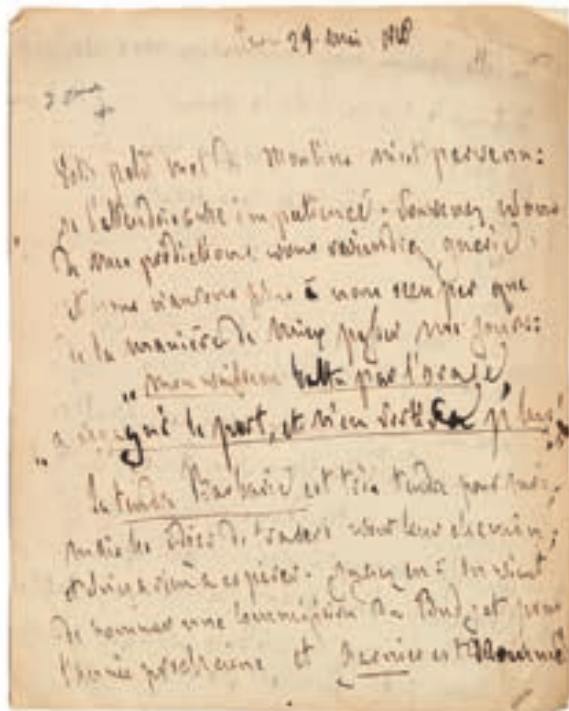 24 mai
petit mot de Moulins m'est parvenu :
je l'attendais impatience. Souvenez vous
de mes prédictions vous reviendrez guérie
et nous n'aurons plus à nous occuper que
de la manière de mieux passer nos jours :
"mon vaisseau battu par l'orage,
"a regagné le port, et n'en sortira plus!"
le tendre est très tendre pour moi,
mais les idées de vont leur chemin,
espérer. on vient
de nommer une Commission du Budget pour
l'année prochaine, et est nommé